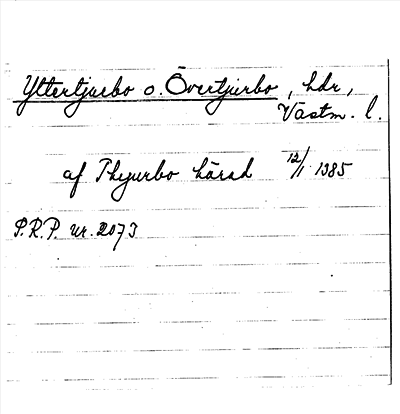 Yttertjurbo o. Övertjurbo, hdr,
Västm. l.
af Thyurbo härad 12/1 1385
P.R.P. nr. 2073